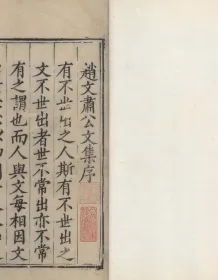 趙文肅公文集序
有不世出之人斯有不世出之
文不世出者世不常出亦不常
有之謂也而人與文每相因文